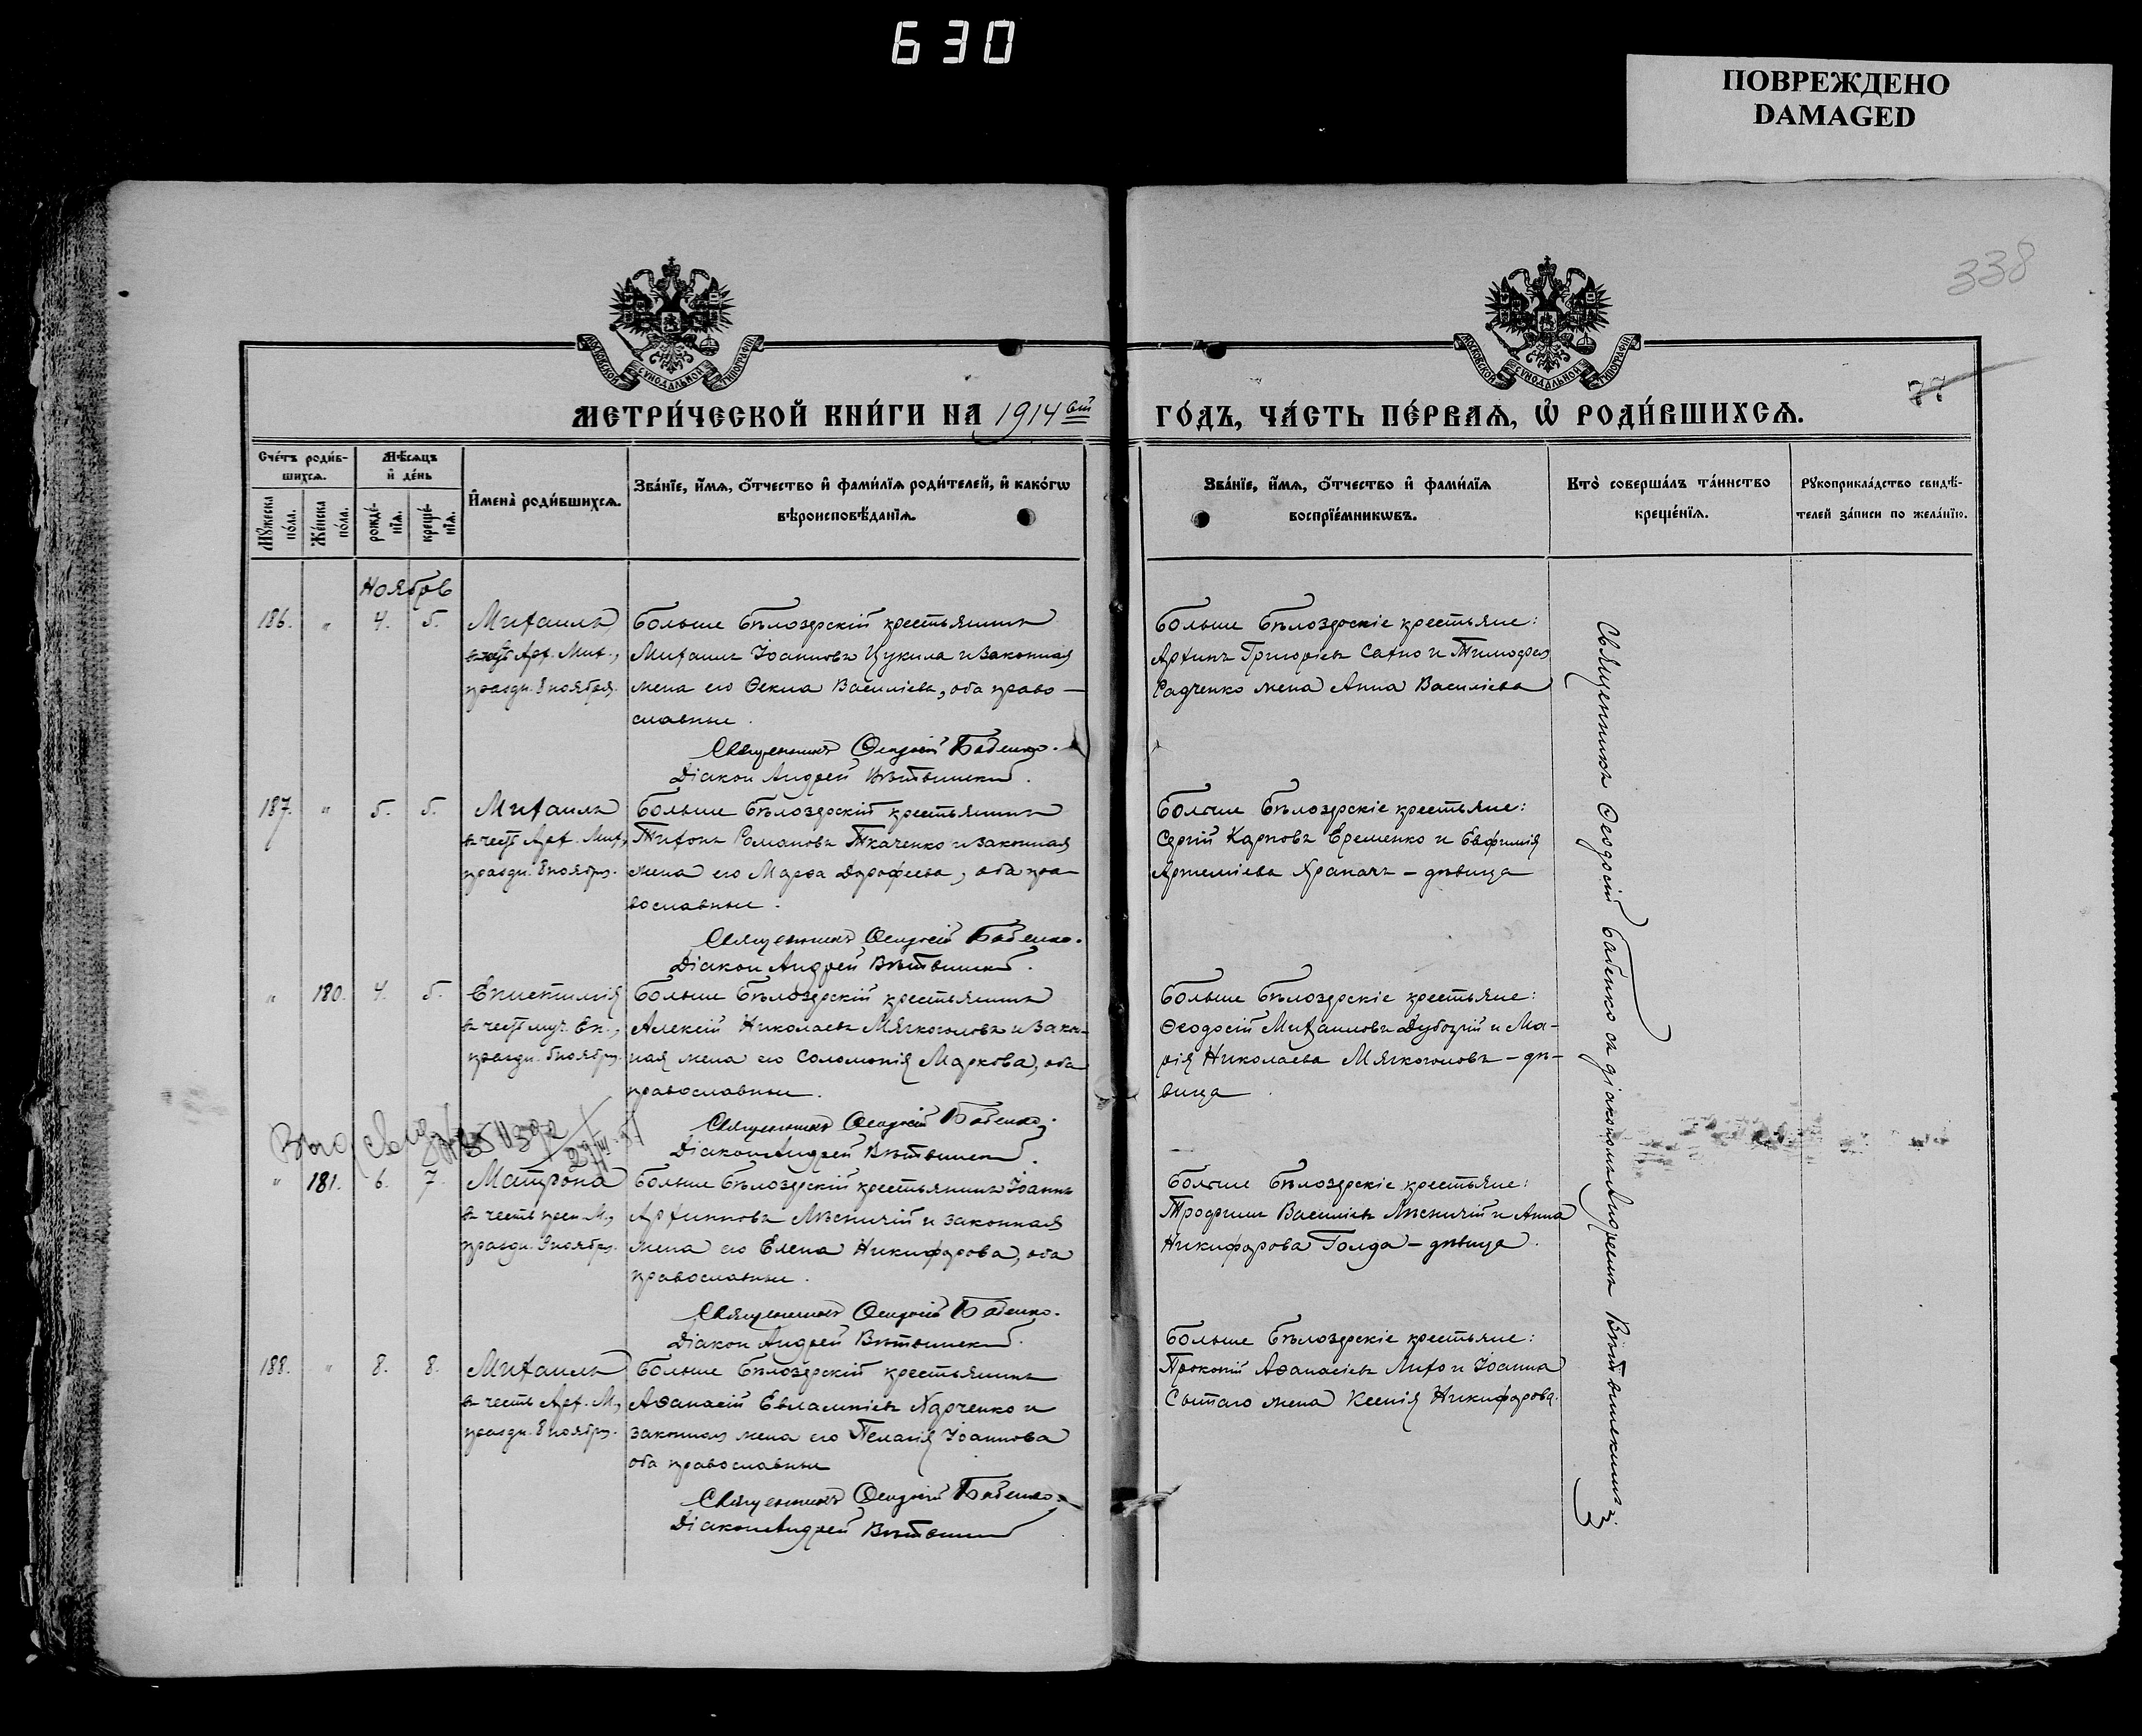 630
ПОВРЕЖДЕНО
DAMAGED
338
77
МОСКОВСКОЙ СУНОДАЛЬНОЙ ТИПОГРАФІИ
МОСКОВСКОЙ СУНОДАЛЬНОЙ ТИПОГРАФІИ
МЕТРИ́ЧЕСКОЙ КНИ́ГИ НА 1914 ый
ГО́ДЪ, ЧА́СТЬ ПЕ́РВАѦ, Ѡ҆ РОДИ́ВШИХСѦ.
Сче́тъ роди́в-
шихсѧ.
Мꙋ́жеска по́ла.
Же́нска по́ла.
Мѣ́сѧцъ
и҆ де́нь
рожде́-
нїѧ.
креще́-
нїѧ.
И҆мена̀ роди́вшихсѧ.
Зва́нїе, и҆́мѧ, ѻ҆́тчество и҆ фами́лїѧ роди́телей, и҆ како́гѡ
вѣроисповѣ́данїѧ.
Зва́нїе, и҆́мѧ, ѻ҆́тчество и҆ фами́лїѧ
воспрїе́мникѡвъ.
Кто̀ соверша́лъ та́инство
креще́нїѧ.
Рꙋкоприкла́дство свидѣ́-
телей за́писи по жела́нїю.
Ноябрь
186. " 4. 5. Михаилъ
въ честь Арх. Мих.,
праздн. 8 ноября.
Больше Бѣлозерскій крестьянинъ
Михаилъ Іоанновъ Цукила и законная
жена его Ѳекла Василіева, оба право-
славные.
Священникъ Ѳеодосій Бабенко.
Діакон Андрей
Больше Бѣлозерскіе крестьяне:
Архипъ Григоріевъ Сахно и Тимофея
Радченко жена Анна Василіева
187. " 5. 5. Михаилъ
въ честь Арх. Мих.,
праздн. 8 ноября.
Больше Бѣлозерскій крестьянинъ
Тихонъ Романовъ Ткаченко и законная
жена его Марѳа Дорофеева, оба пра-
вославные.
Священникъ Ѳеодосій Бабенко.
Діакон Андрей
Больше Бѣлозерскіе крестьяне:
Сергій Карповъ Еременко и Евфимія
Артеміева Храпачъ - дѣвица
" 180. 4. 5. Епистимія
въ честь муч. Еп.,
праздн. 6 ноября.
Больше Бѣлозерскій крестьянинъ
Алексій Николаевъ Мягкоголовъ и закон-
ная жена его Соломонія Маркова, оба
православные.
Священникъ Ѳеодосій Бабенко.
Діакон Андрей
Больше Бѣлозерскіе крестьяне:
Ѳеодосій Михаиловъ Дубоцкій и Ма-
рія Николаева Мягкоголовъ - дѣ-
вица
" 181. 6. 7. Матрона
въ честь преп. М.,
праздн. 9 ноября.
Больше Бѣлозерскій крестьянинъ Іоаннъ
Архипповъ Лѣсничій и законная
жена его Елена Никифорова, оба
православные.
Священникъ Ѳеодосій Бабенко.
Діакон Андрей
Больше Бѣлозерскіе крестьяне:
Трофимъ Василіевъ Лѣсничій и Анна
Никифорова Голда - дѣвица.
188. " 8. 8. Михаилъ
въ честь Арх. М.,
праздн. 8 ноября.
Больше Бѣлозерскій крестьянинъ
Аѳанасій Евлампіевъ Харченко и
законная жена его Пелагія Іоаннова
оба православные
Священникъ Ѳеодосій Бабенко.
Діакон Андрей
Больше Бѣлозерскіе крестьяне:
Прокопій Аѳанасіевъ Лихо и Іоанна
Сытаго жена Ксенія Никифорова.
Священникъ Ѳеодосій Бабенко съ діакономъ Андреемъ